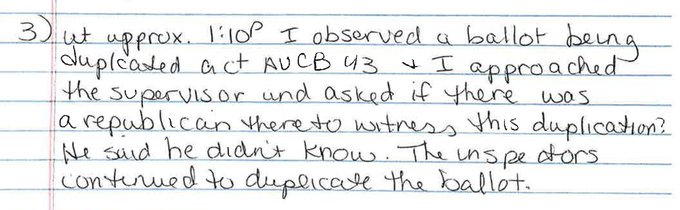 3) at approx. 1:10P I observed a ballot being
duplcated act AVCB 43 + I approached
the supervisor and asked if there was
a republican there to witness this duplication?
He said he didn't know. The inspectors
continued to duplicate the ballot.